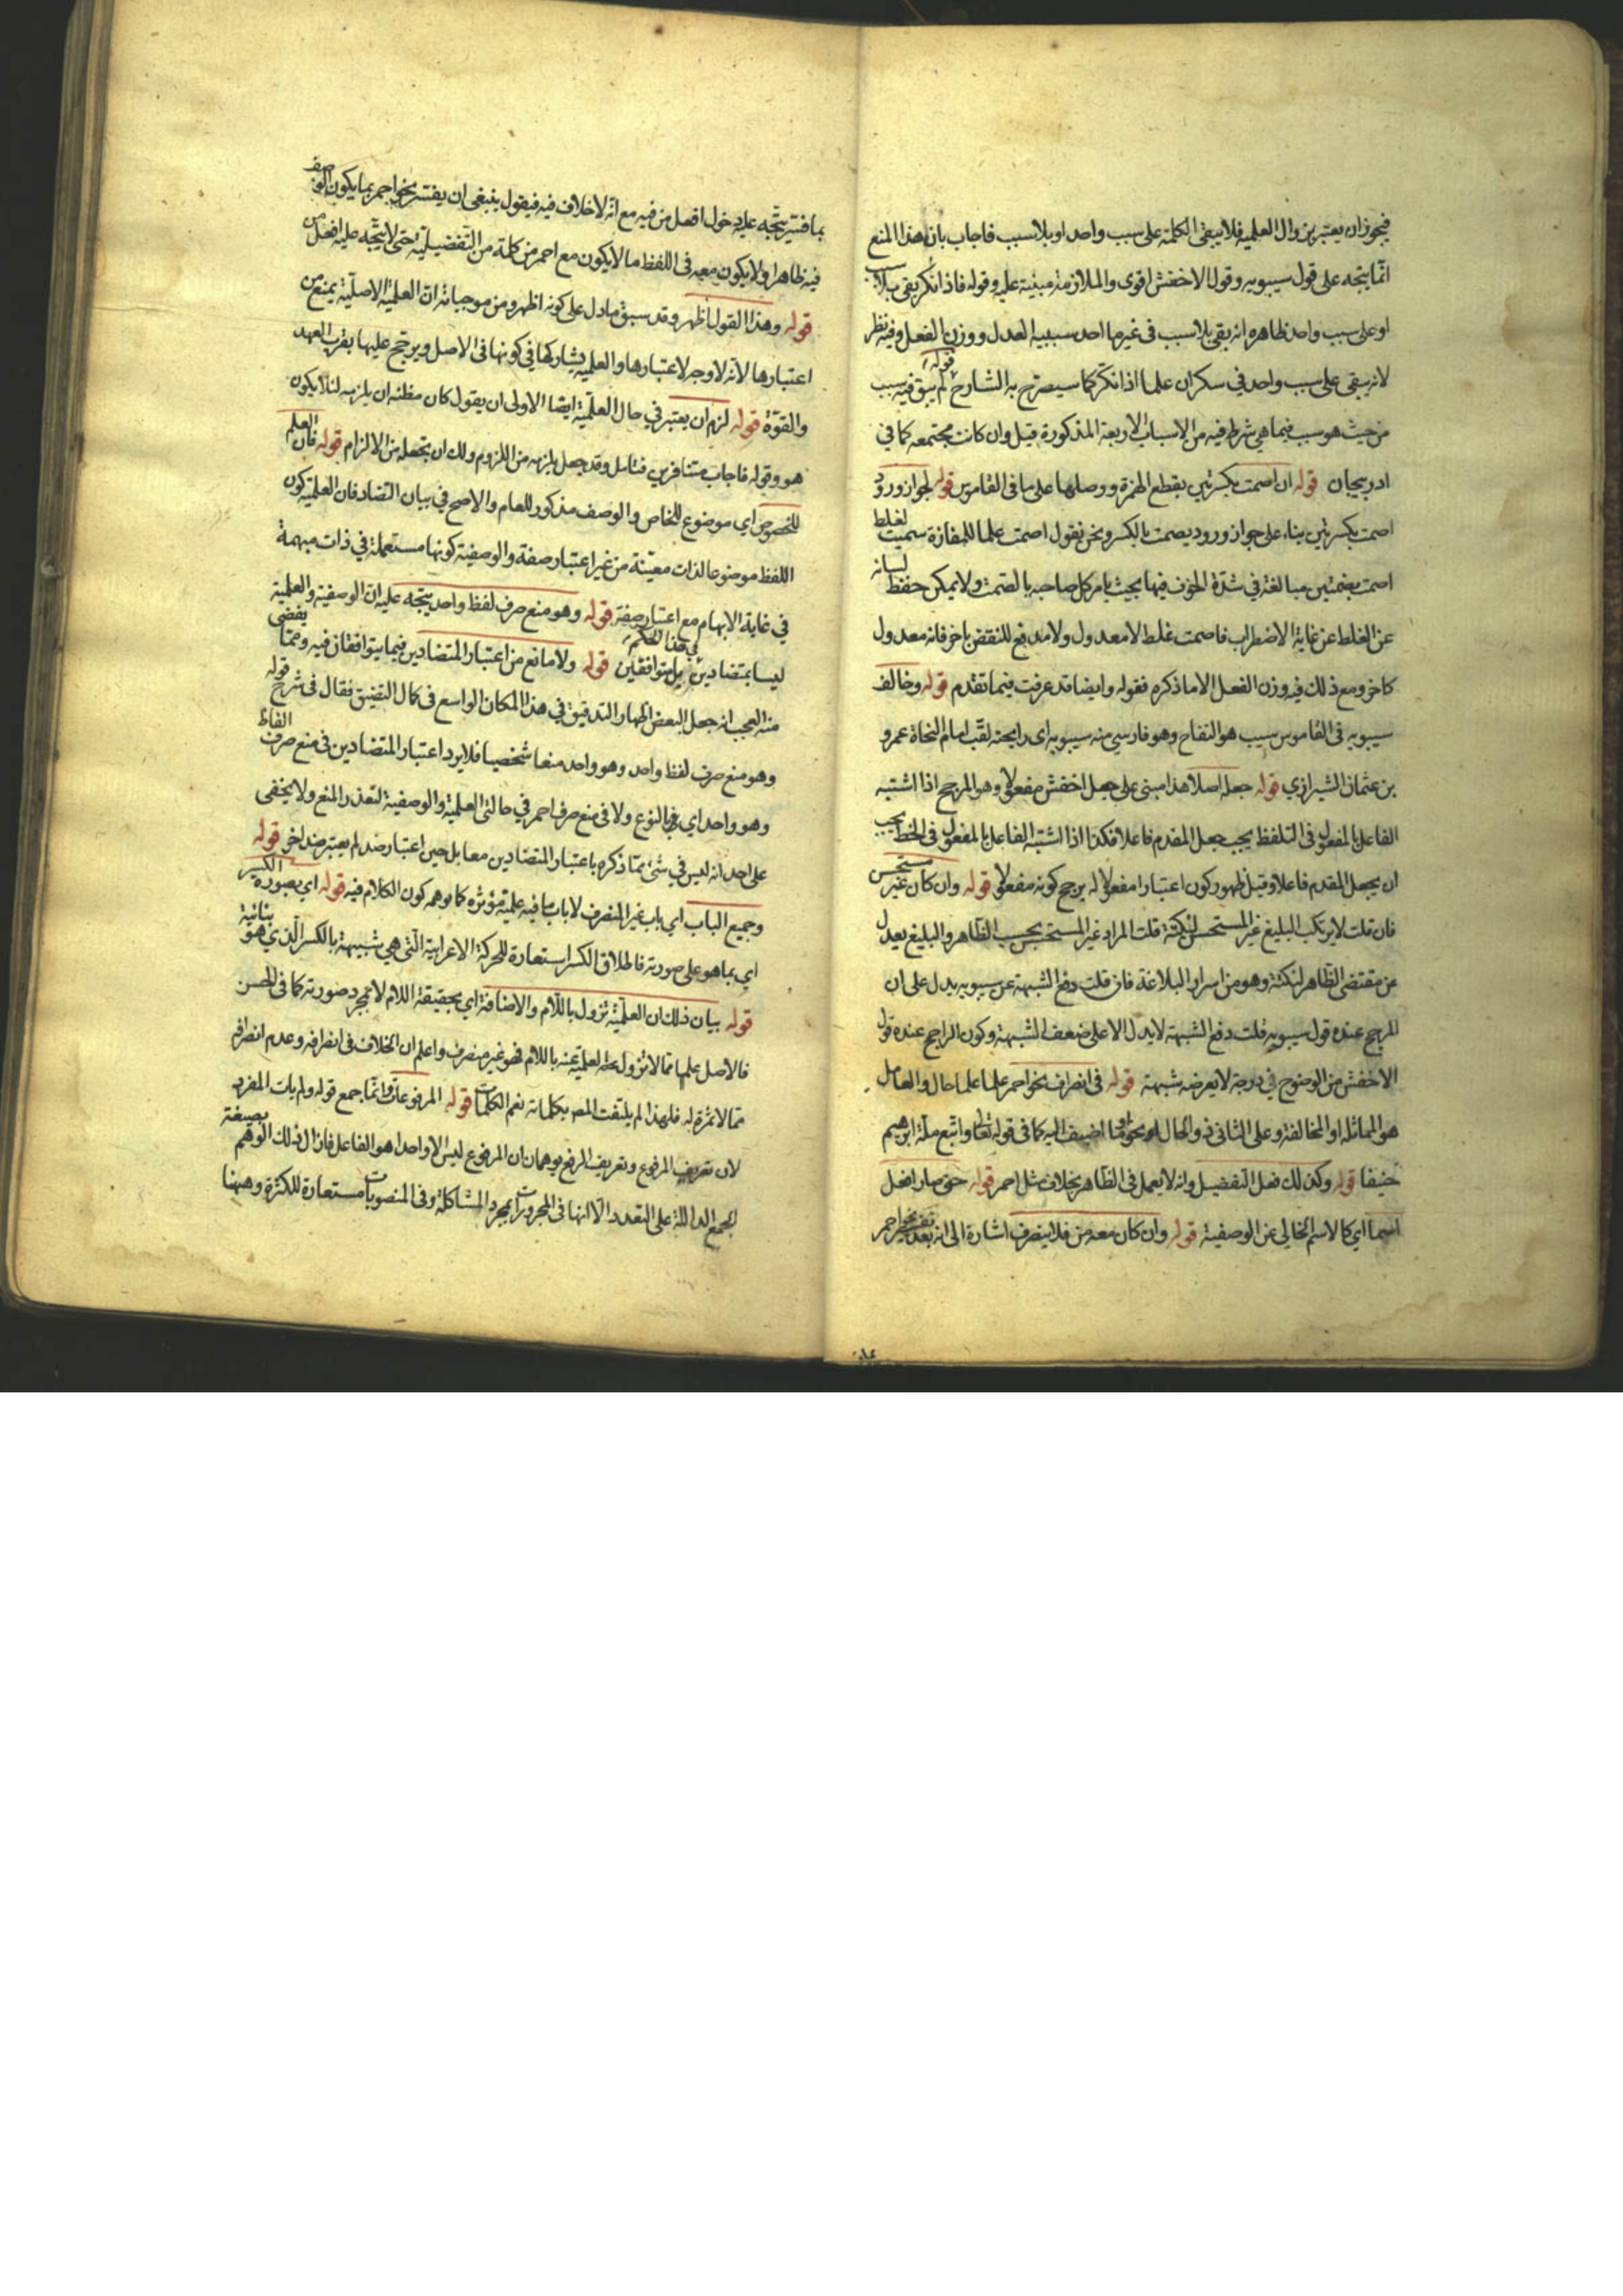 فيجوز ان يعتبر بزوال العلمية فلا يبقى الكلمة على سبب واحد او بلا سبب فاجاب بان هذا المنع
انما يتجه على قول سيبويه وقول الاخفش اقوى والملازمة مبنية عليه وقوله فاذا نكر بقى بلا سبب
او على سبب واحد ظاهره انه بقى بلا سبب فى غيرها احد سببيه العدل ووزن الفعل وفيه نظر
لانه يبقى على سبب واحد في سكران علما اذا نكر كما سيصرح به الشارح قوله لم يبق فيه سبب
من حيث هو سبب فيما هي شرط فيه من الاسباب الاربعة المذكورة قبل وان كانت مجتمعه كما في
ادربيجان قوله ان اصمت بكسرتين بقطع الهمزة ووصلها على ما فى القاموس قوله لجواز ورود
اصمت بكسرتين بناء على جواز ورود يصمت بالكسر ونحن نقول اصمت علما للمفازة سميت لغلط
اصمت بضمتين مبالغة في شدة الخوف فيها بحيث يامر كل صاحبه بالصمت ولا يمكن حفظ لسانه
عن الغلط عن غاية الاضطراب فاصمت غلط لا معدول ولا مدفع للنقض باخر فانه معدول
كاخر ومع ذلك فيه وزن الفعل الا ما ذكره فقوله وايضا قد عرفت فيما تقدم قوله وخالف
سيبويه فى القاموس سيب هو التفاح وهو فارسي منه سيبويه اى رايحته لقب امام النحاة عمرو
بن عثمان الشيرازي قوله جعله اصلا هذا مبنى على جعل اخفش مفعولا وهو المرجح اذا اشتبه
الفاعل بالمفعول فى التلفظ يجب جعل المقدم فاعلا فكذا اذا اشتبه الفاعل بالمفعول فى الخط يجب
ان يجعل المقدم فاعلا وقيل ظهور كون اعتبارا مفعولا له يرجح كونه مفعولا قوله وان كان غير مستحسن
فان قلت لا يرتكب البليغ غير المستحسن لنكتة قلت المراد غير المستحسن بحسب الظاهر والبليغ يعدل
عن مقتضى الظاهر لنكتة وهو من اسرار البلاغة فان قلت دفع الشبهة عن سيبويه يدل على ان
المرجح عنده قول سيبويه قلت دفع الشبهة لا يدل الا على ضعف الشبهة وكون الراجح عنده قول
الاخفش من الوضوح في درجة لا يعرضه شبهة قوله فى انصراف نحو احمر علما علما حال والعامل
هو المماثلة او المخالفة وعلى الثانى ذو الحال اضيف اليه كما فى قوله تعا واتبع ملة ابراهيم
حنيفا قوله وكذلك فعل التفضيل وانه لا يعمل فى الظاهر بخلاف مثل احمر قوله حتى صار افعل
اسما اي كالاسم الخالي عن الوصفية قوله وان كان معه من فلا ينصرف اشارة الى انه بعد تفسير نحو احمر
بما فسر يتجه عليه دخول افعل من فيه مع انه لا خلاف فيه فيقول ينبغى ان يفسر نحو احمر بما يكون الوصف
فيه ظاهرا ولا يكون معه فى اللفظ ما لا يكون مع احمر من كلمة من التفضيلية حتى لا يتجه عليه افعل من
قوله وهذا القول اظهر وقد سبق ما دل على كونه اظهر ومن موجباته ان العلمية الاصلية يمنع من
اعتبارها لانه لا وجه لاعتبارها والعلمية يشاركها في كونها فى الاصل ويرجح عليها بقرب العهد
والقوة قوله لزم ان يعتبر في حال العلمية ايضا الاولى ان يقول كان مظنة ان يلزمه لئلا يكون
هو وقوله فاجاب متنافرين فتامل وقد جعل يلزمه من اللزوم ولك ان تجعله من الالزام قوله فان العلم
للخصوص اي موضوع للخاص والوصف مذكور للعام والاصح في بيان التضاد فان العلمية كون
اللفظ موضوعا لذات معينة من غير اعتبار صفة والوصفية كونها مستعملة في ذات مبهمة
في غاية الابهام مع اعتبار صفة قوله وهو منع صرف لفظ واحد يتجه عليه ان الوصفية والعلمية
ليسا بمتضادين في هذا الحكم بل متوافقين قوله ولا مانع من اعتبار المتضادين فيما يتوافقان فيه ومما يقضى
منه العجب انه جعل البعض اظهار التدقيق في هذا المكان الواسع فى كمال التضيق فقال فى شرح قوله
وهو منع صرف لفظ واحد وهو واحد منعا شخصيا فلا يرد اعتبار المتضادين فى منع صرف الفاظ
وهو واحد اي بالنوع ولا فى منع صرف احمر في حالتى العلمية والوصفية لتعذر المنع ولا يخفى
على احد انه ليس في شئ مما ذكره باعتبار المتضادين معا بل حين اعتبار ضد لم يعتبر ضد اخر قوله
وجميع الباب اي باب غير المنصرف لا باب ما فيه علمية مؤثرة كما يوهمه كون الكلام فيه قوله اي بصورة الكسر
اي بما هو على صورته فاطلاق الكسر استعارة للحركة الاعرابية التى هي شبيهة بالكسر الذي هو بنائية
قوله بيان ذلك ان العلمية تزول باللام والاضافة اي بحقيقة اللام لا بمجرد صورته كما فى الحسن
فالاصل علما مما لا تزول عنه العلمية باللام فهو غير منصرف واعلم ان الخلاف فى انصرافه وعدم انصرافه
مما لا ثمرة له فلهذا لم يلتفت المص بكلماته نعم الكلمات قوله المرفوعات وانما جمع قوله ولم يات المفرد
لان تعريف المرفوع وتعريف الرفع يوهمان ان المرفوع ليس الا واحدا هو الفاعل فازال ذلك الوهم بصيغة
الجمع الدالة على التعدد الا انها فى المجرورات لمجرد المشاكلة وفى المنصوبات مستعارة للكثرة وههنا